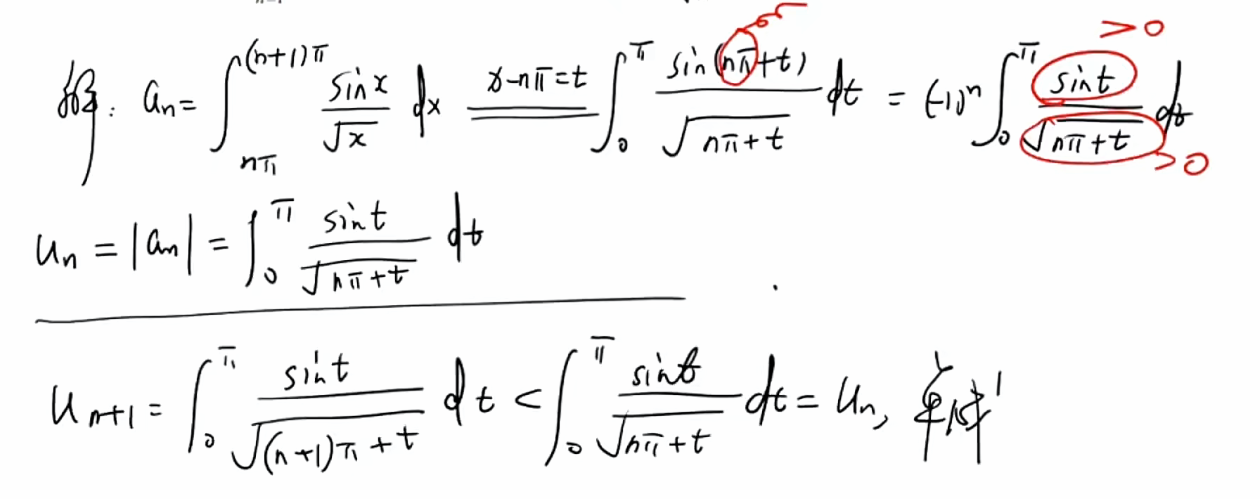 解: aₙ = ∫_{nπ}^{(n+1)π} sinx/√x dx =(x-nπ=t)= ∫_0^π sin(nπ+t)/√(nπ+t) dt = (-1)ⁿ ∫_0^π sint/√(nπ+t) dt >0 >0
uₙ = |aₙ| = ∫_0^π sint/√(nπ+t) dt
uₙ₊₁ = ∫_0^π sint/√((n+1)π+t) dt < ∫_0^π sint/√(nπ+t) dt = uₙ, 单减